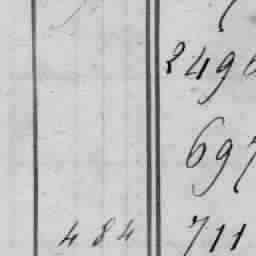 249
697
484 711